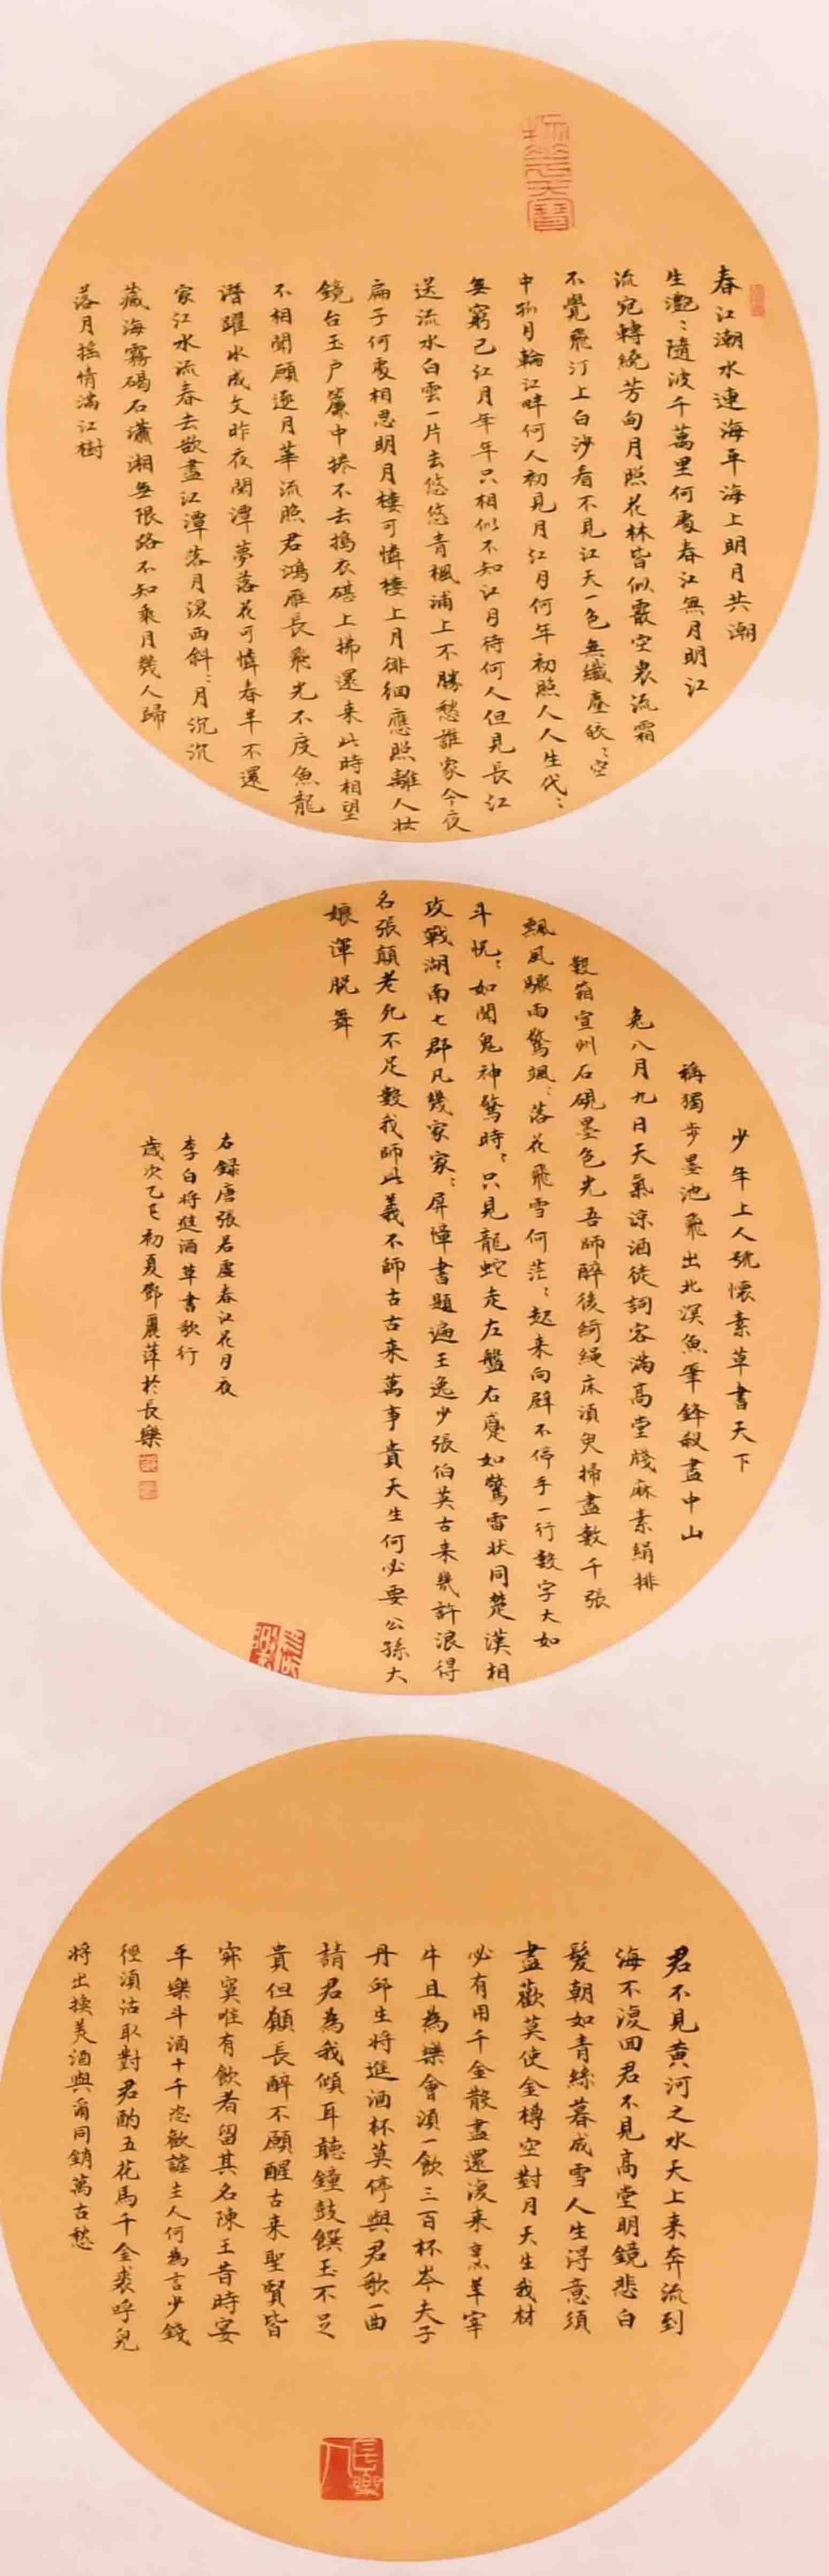 春江潮水連海平海上明月共潮
生灔〻隨波千萬里何處春江無月明江
流宛轉繞芳甸月照花林皆似霰空裏流霜
不覺飛汀上白沙看不見江天一色無纖塵皎〻空
中孤月輪江畔何人初見月江月何年初照人人生代〻
無窮已江月年年只相似不知江月待何人但見長江
送流水白雲一片去悠悠青楓浦上不勝愁誰家今夜
扁子何處相思明月樓可憐樓上月徘徊應照離人妝
鏡台玉户簾中捲不去搗衣碪上拂還来此時相望
不相聞願逐月華流照君鴻雁長飛光不度魚龍
潛躍水成文昨夜閑潭夢落花可憐春半不還
家江水流春去欲盡江潭落月復西斜〻月沉沉
藏海霧碣石瀟湘無限路不知乘月幾人歸
落月搖情滿江樹
少年上人號懷素草書天下
稱獨步墨池飛出北溟魚筆鋒殺盡中山
兔八月九日天氣涼酒徒詞客滿高堂牋麻素絹排
數箱宣州石硯墨色光吾師醉後綺繩床須臾掃盡數千張
飄風驟雨驚颯〻落花飛雪何茫〻起来向壁不停手一行數字大如
斗怳〻如聞鬼神驚時〻只見龍蛇走左盤右蹙如驚雷狀同楚漢相
攻戰湖南七郡凡幾家家〻屏幛書題遍王逸少張伯英古来幾許浪得
名張顛老死不足數我師此義不師古古来萬事貴天生何必要公孫大
娘渾脱舞
右録唐張若虛春江花月夜
李白将進酒草書歌行
歲次乙巳初夏鄧麗萍於長樂
君不見黄河之水天上来奔流到
海不復回君不見高堂明鏡悲白
髮朝如青絲暮成雪人生得意須
盡歡莫使金樽空對月天生我材
必有用千金散盡還復来烹羊宰
牛且為樂會須一飲三百杯岑夫子
丹邱生将進酒杯莫停與君歌一曲
請君為我傾耳聽鐘鼓饌玉不足
貴但願長醉不願醒古来聖賢皆
寂寞唯有飲者留其名陳王昔時宴
平樂斗酒十千恣歡謔主人何為言少錢
徑須沽取對君酌五花馬千金裘呼兒
将出換美酒與爾同銷萬古愁